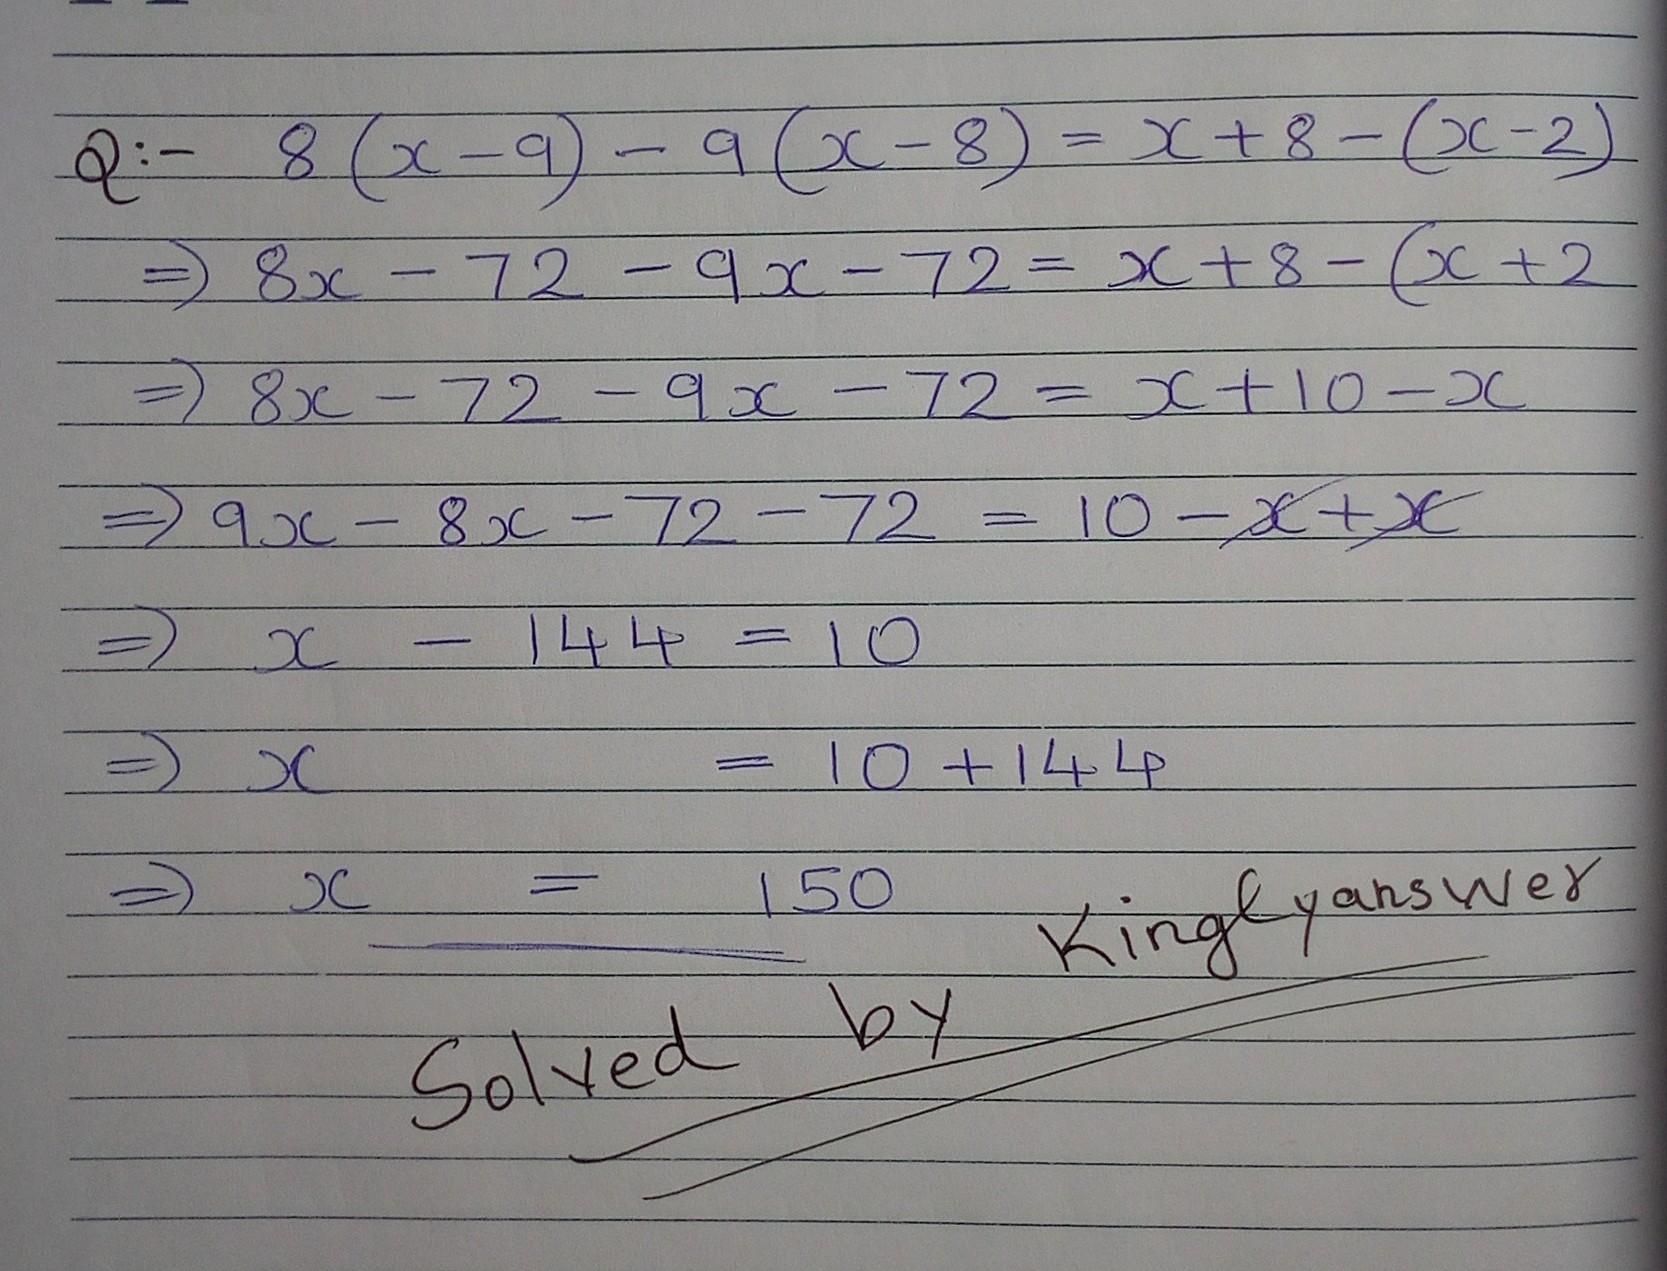 Q:- 8(x-9)-9(x-8)=x+8-(x-2)
⇒ 8x-72-9x-72=x+8-(x+2
⇒ 8x-72-9x-72=x+10-x
⇒ 9x-8x-72-72=10-x+x
⇒ x-144=10
⇒ x =10+144
⇒ x = 150
Solved by Kinglyanswer